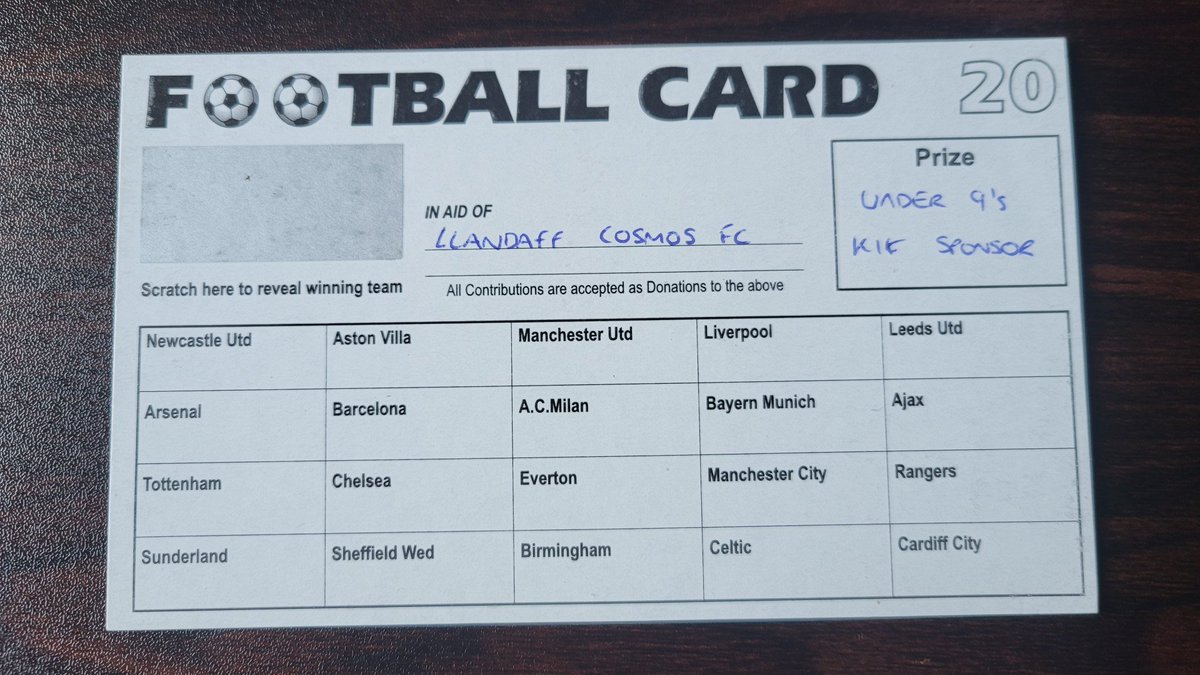 FOOTBALL CARD 20
Prize
UNDER 9's
KIT SPONSOR
IN AID OF
LLANDAFF COSMOS FC
Scratch here to reveal winning team
All Contributions are accepted as Donations to the above
Newcastle Utd Aston Villa Manchester Utd Liverpool Leeds Utd
Arsenal Barcelona A.C.Milan Bayern Munich Ajax
Tottenham Chelsea Everton Manchester City Rangers
Sunderland Sheffield Wed Birmingham Celtic Cardiff City